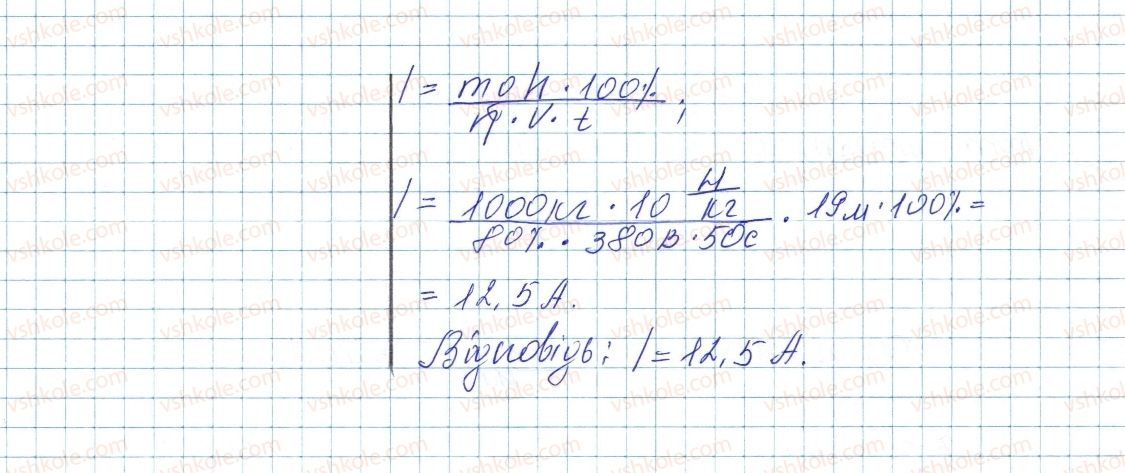 I = mgh · 100% / η · V · t ;
I = 1000кг · 10 Н/кг / 80% · 380В · 50с · 19м · 100% =
= 12,5 А.
Відповідь: I = 12,5 А.